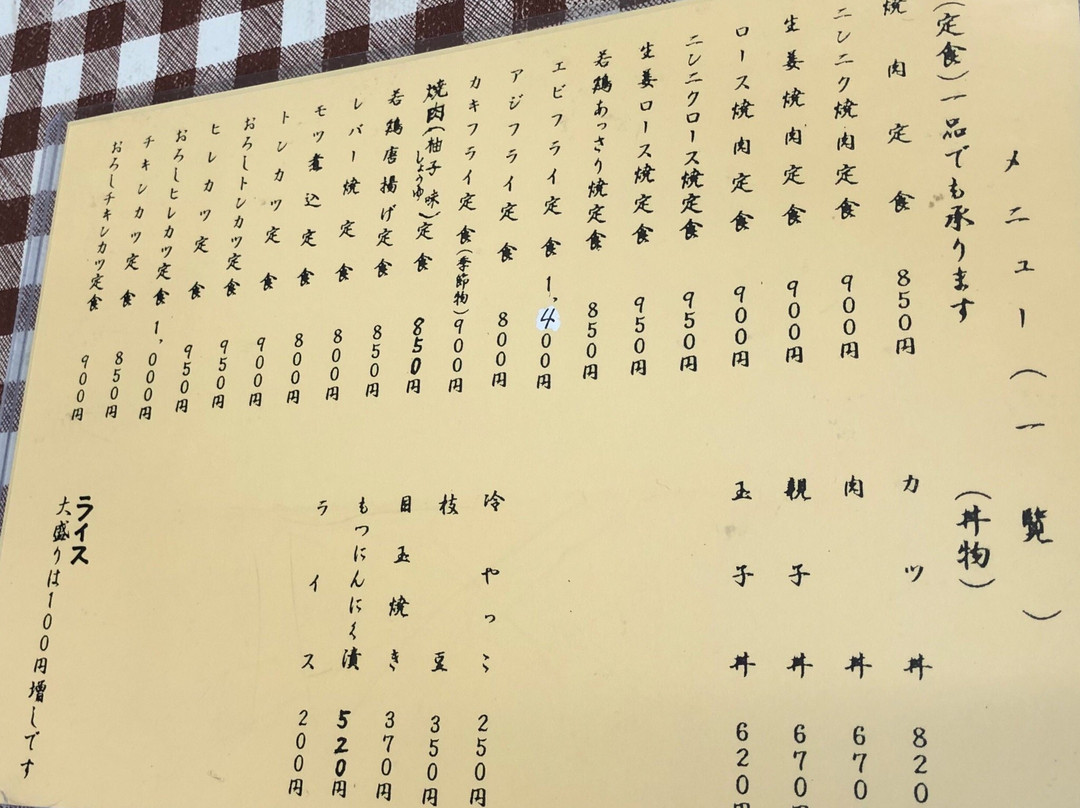 メニュー(一覧)
(定食)一品でも承ります
焼肉定食 850円
ニンニク焼肉定食 900円
生姜焼肉定食 900円
ロース焼肉定食 900円
ニンニクロース焼定食 950円
生姜ロース焼定食 950円
若鶏あっさり焼定食 850円
エビフライ定食 1,400円
アジフライ定食 800円
カキフライ定食(季節物) 900円
焼肉(柚子しょうゆ味)定食 850円
若鶏唐揚げ定食 850円
レバー焼定食 800円
モツ煮込定食 800円
トンカツ定食 900円
おろしトンカツ定食 950円
ヒレカツ定食 950円
おろしヒレカツ定食 1,000円
チキンカツ定食 850円
おろしチキンカツ定食 900円
(丼物)
カツ丼 820
肉丼 670
親子丼 670円
玉子丼 620円
冷やっこ 250円
枝豆 350円
目玉焼き 370円
もつにんにく漬 520円
ライス 200円
ライス
大盛りは100円増しです